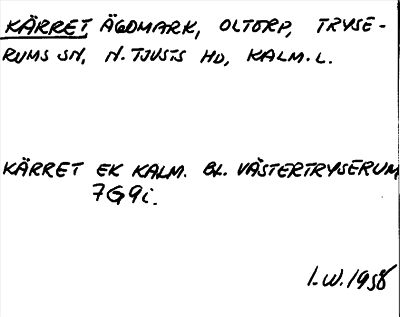 KÄRRET ÄGOMARK, OLTORP, TRYSE-
RUMS SN, N. TJUSTS HD, KALM. L.
KÄRRET EK KALM. BL. VÄSTERTRYSERUM
7G9i.
I.W. 1958